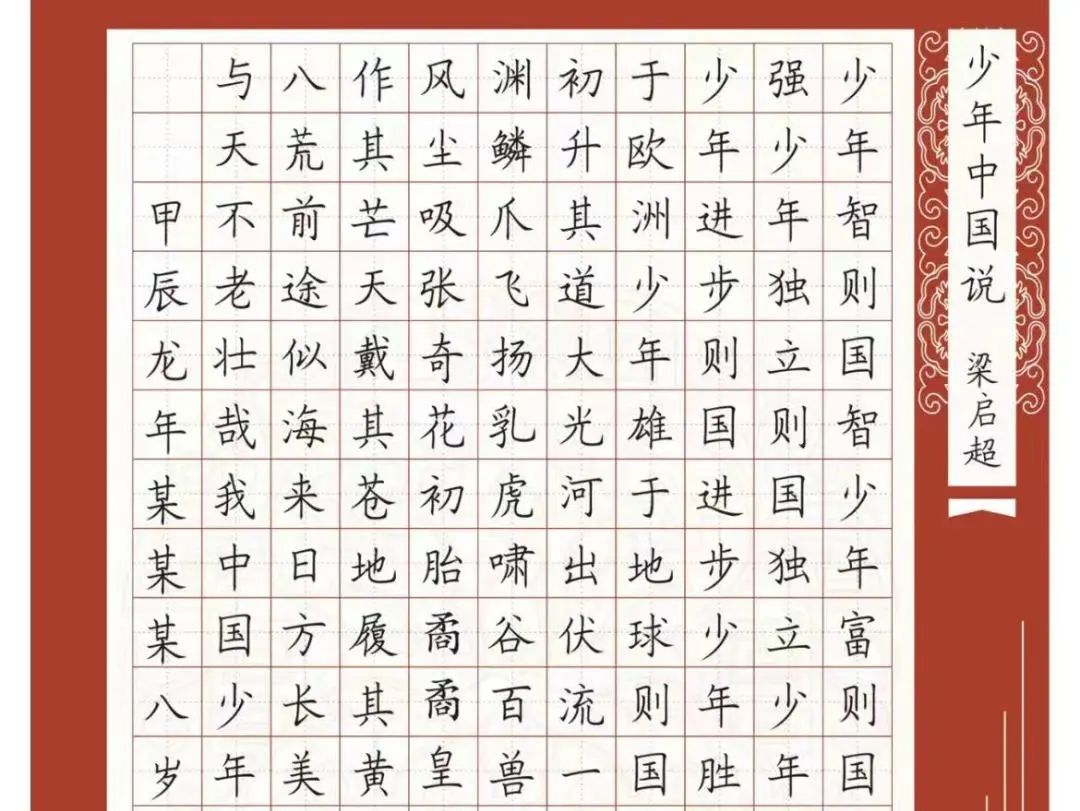 少年中国说 梁启超
少年智则国智少年富则国
强少年独立则国独立少年
少年进步则国进步少年胜
于欧洲少年雄于地球则国
初升其道大光河出伏流一
渊鳞爪飞扬乳虎啸谷百兽
风尘吸张奇花初胎矞矞皇
作其芒天戴其苍地履其黄
八荒前途似海来日方长美
与天不老壮哉我中国少年
甲辰龙年某某八岁